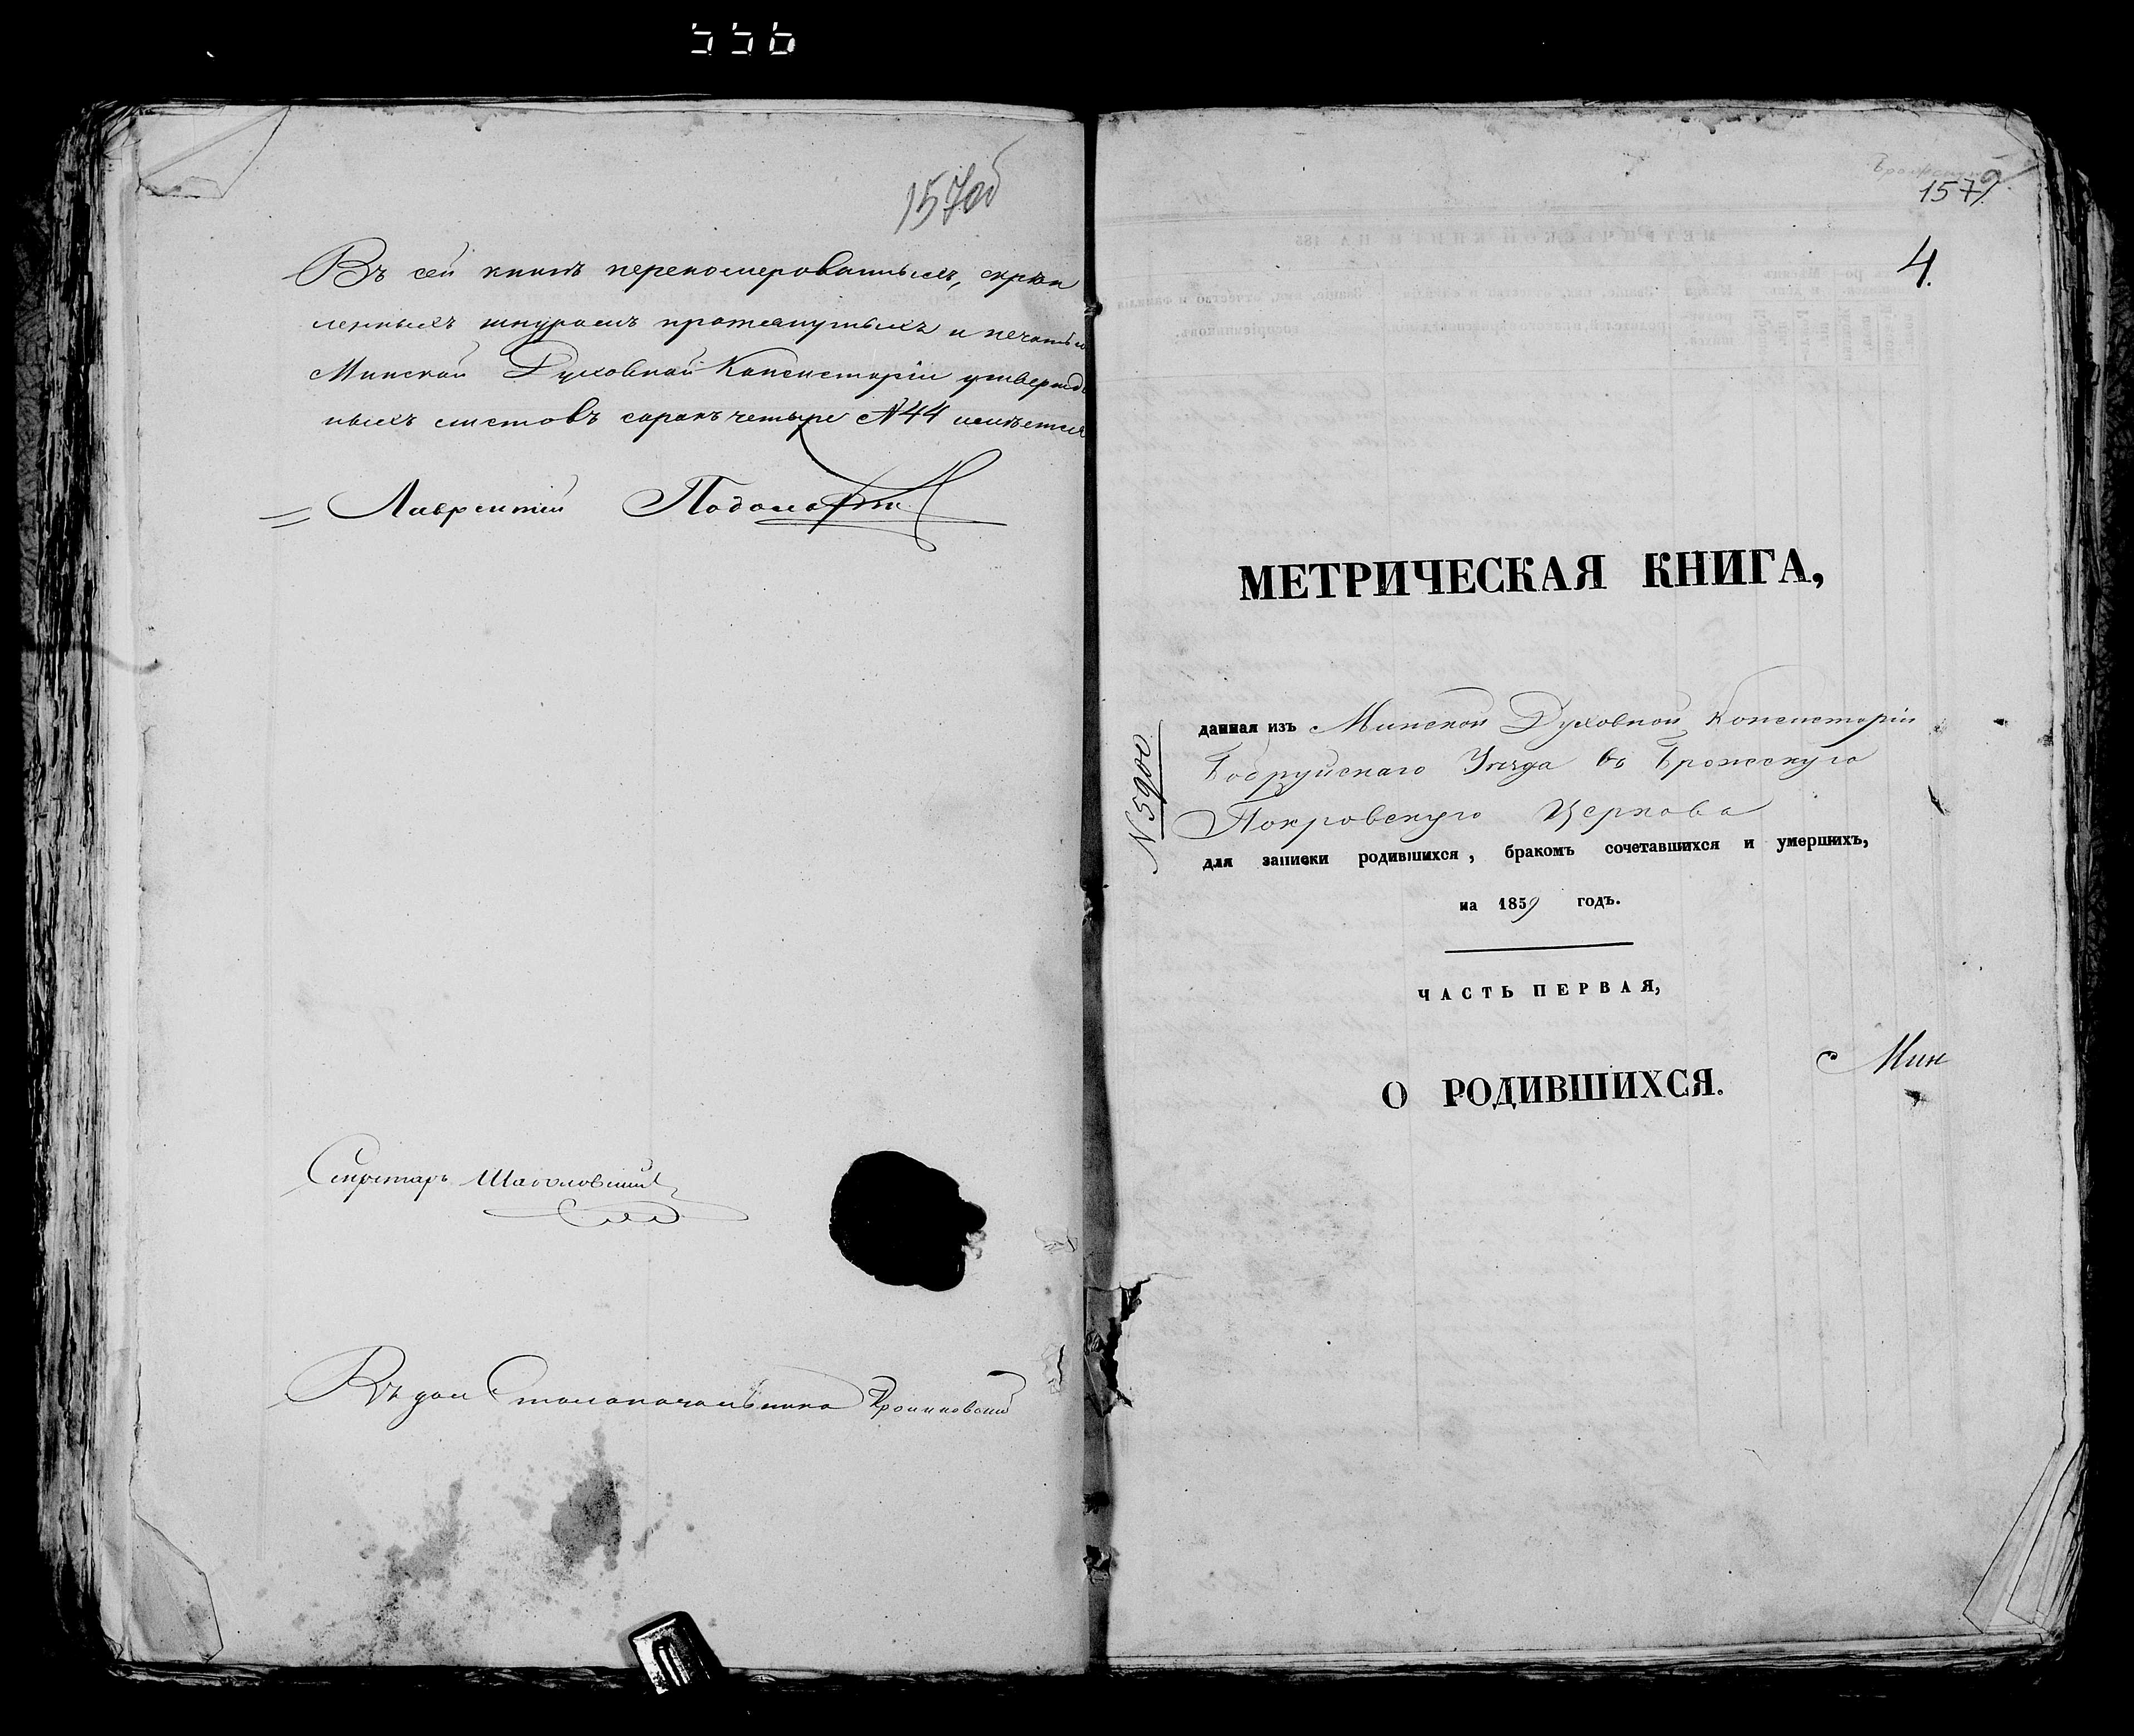 556
157об
Въ сей книгѣ перено­мерованныхъ, скрѣп
ленныхъ шнуромъ протянутыхъ и печатью
Минской Духовной Консисторіи утвержд
ныхъ листовъ сорокъ четыре №44 имѣется
Лаврентій
Секретарь
Въ дол Столоначальника
157
4.
МЕТРИЧЕСКАЯ КНИГА,
№ 5900
данная изъ Минской Духовной Консисторіи
Бобруйскаго Уѣзда въ Брожскую
Покровскую Церковь
для записки родившихся, бракомъ сочетавшихся и умершихъ,
на 1859 годъ.
ЧАСТЬ ПЕРВАЯ,
Мин
О РОДИВШИХСЯ.